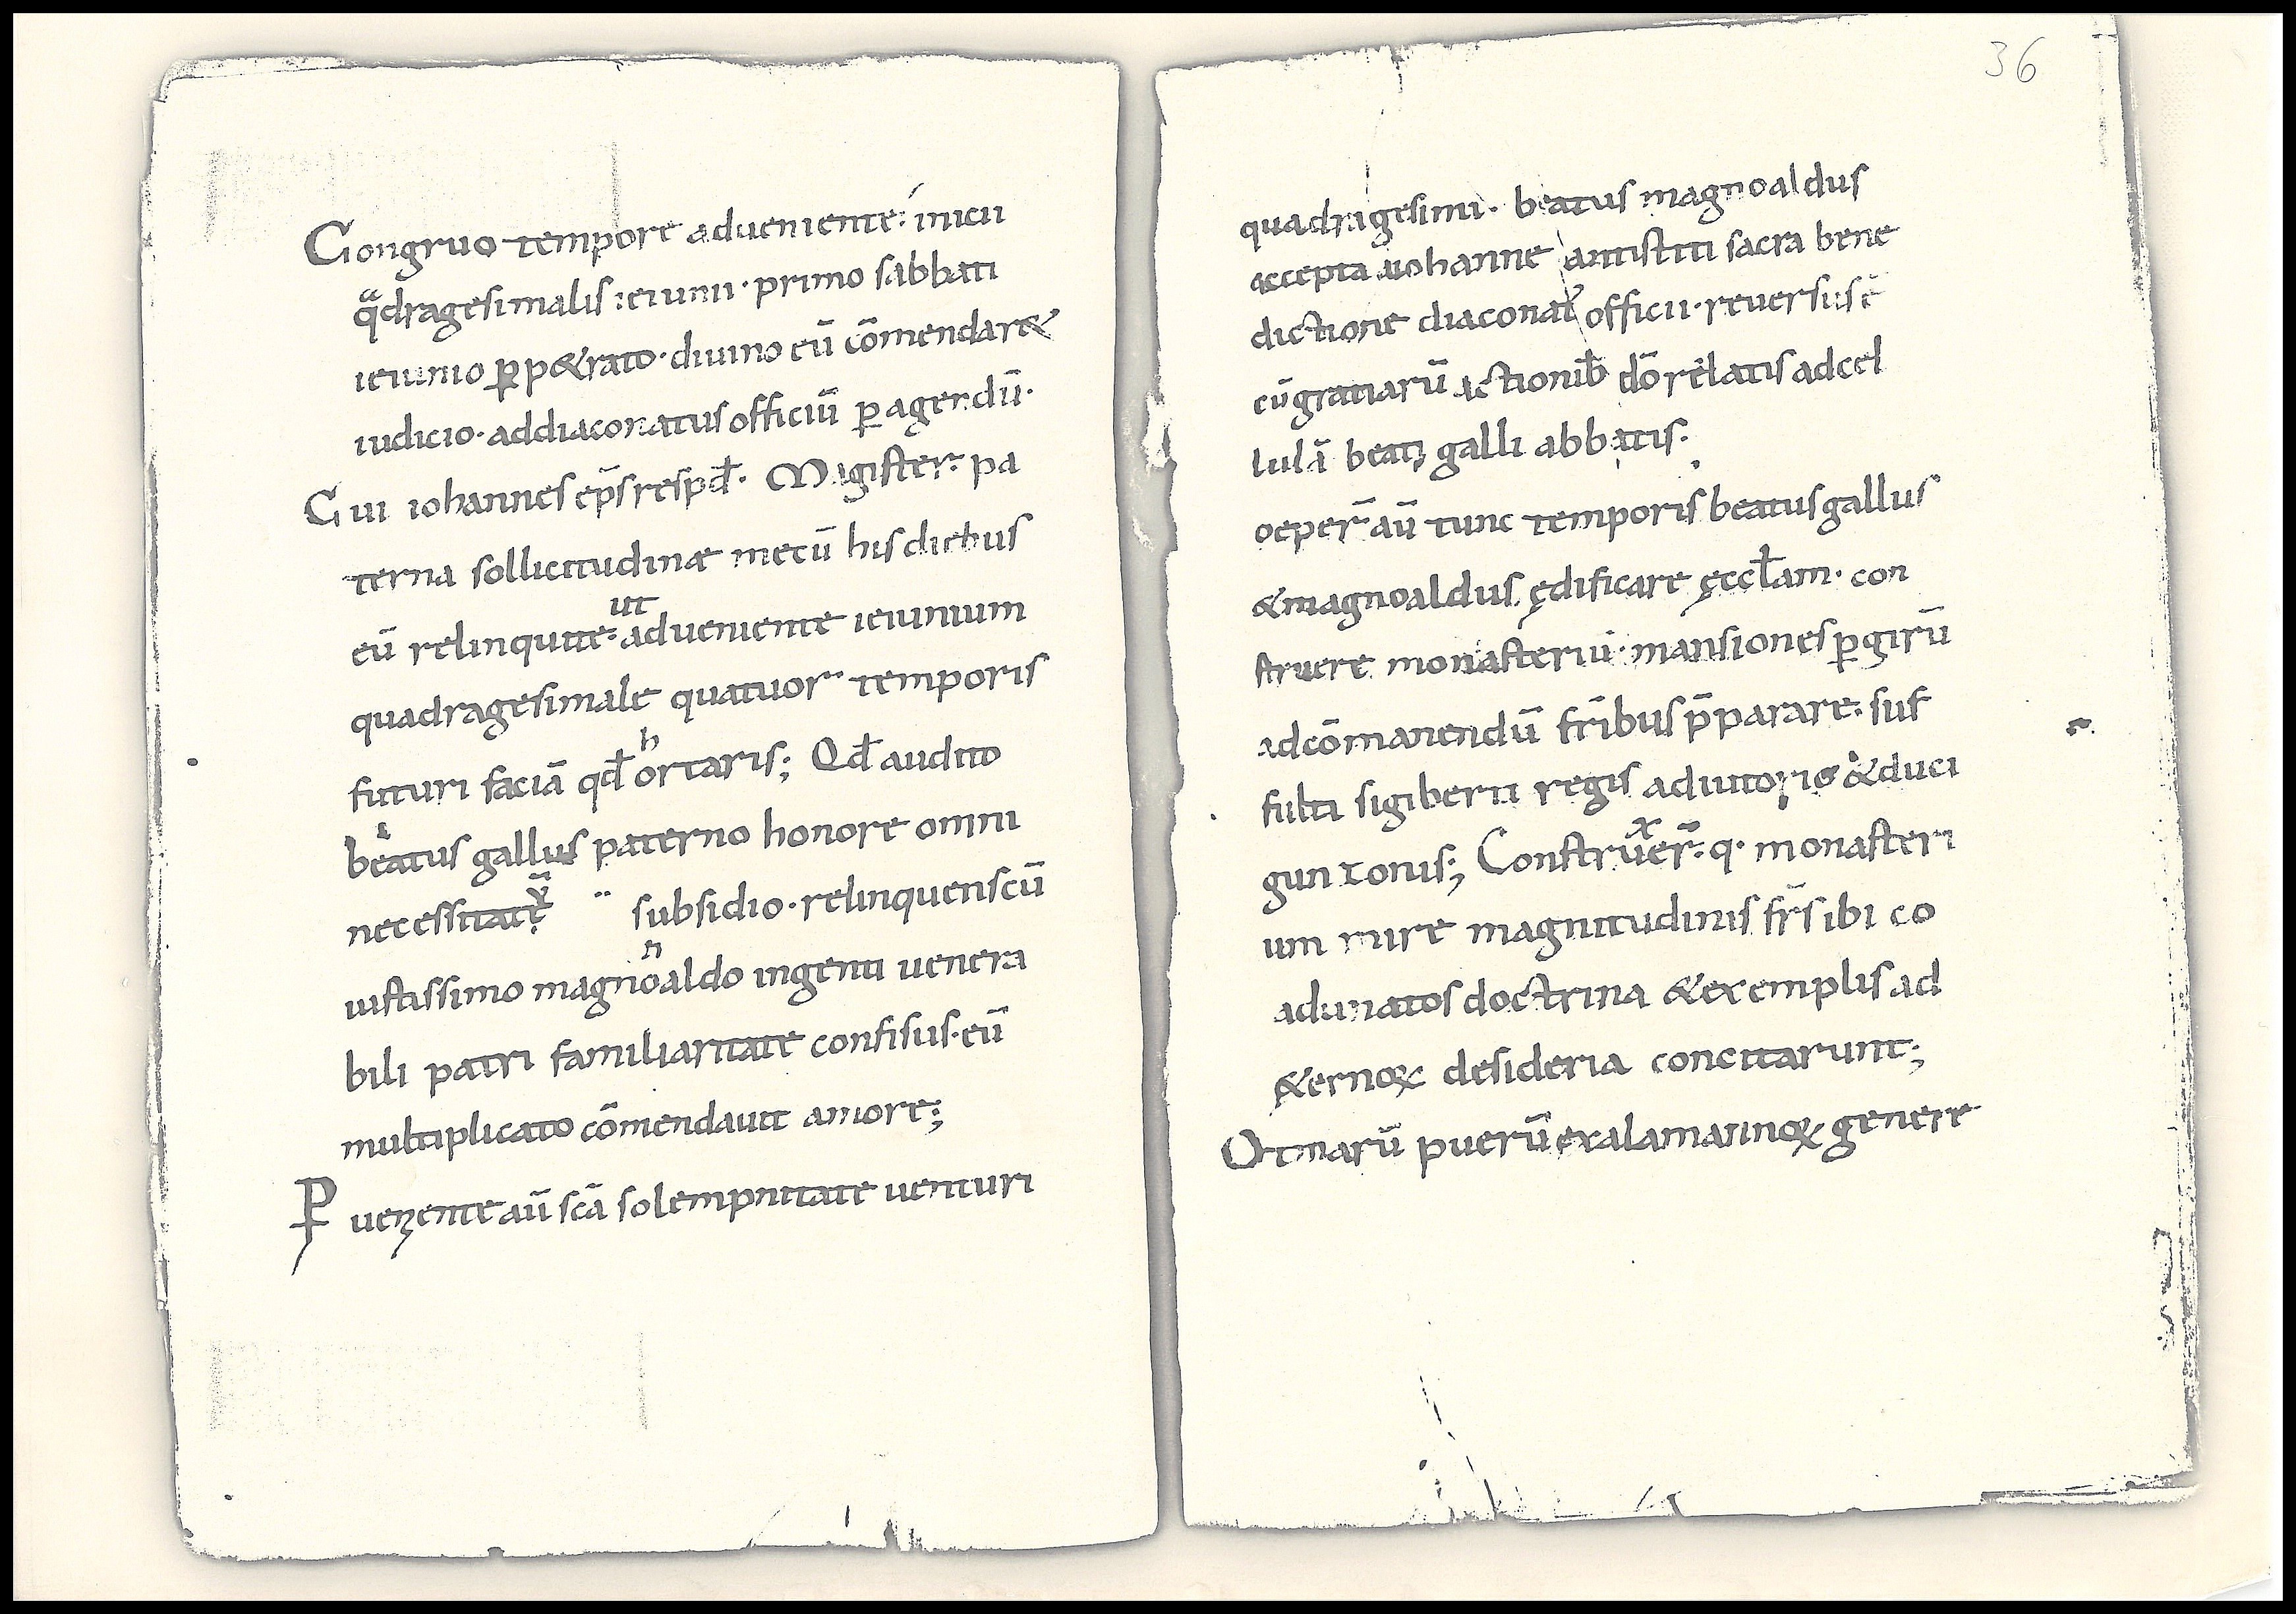 Congruo tempore adueniente: inicii
qͣdragesimalis ieiunii· primo sabbati
ieiunio ꝑp&rato· diuino eū cōmendar&
iudicio· addiaconatus officiū ꝑagendū·
Cui iohannes ep̄s respd̄· Magister· pa
terna sollicitudine mecū his diebus
eū relinquite· ut adueniente ieiunium
quadragesimale quatuor temporis
futuri faciā qd̄ hortaris; Qd̄ audito
beatus gallus paterno honore omni
necessitatę subsidio· relinquens cū
iustissimo magnnoaldo ingenti uenera
bili patri familiaritate confisus· eū
multiplicato cōmendauit amore;
Ꝑueniente aū scā solempnitate uenturi
36
quadragesimi· beatus magnoaldus
accepta a iohanne antistiti sacra bene
dictione diaconat᾿ officii· reuersus ē
cū gratiarū actionib̄ dō relatis ad cel
lulā beati galli abbatis·
oeper̄ aū tunc temporis beatus gallus
& magnoaldus ędificare ęccl̄am· con
struere monasteriū· mansiones ꝑ girū
ad cōmanendū fr̄ibus p̄parare· suf
fulti sigiberti regis adiutorio & duci
gunzonis; Construxer̄· q· monasteri
um mire magnitudinis fr̄s ibi co
adunatos doctrina & exemplis ad
&ernoꝝ desideria concitarunt;
Otmarū puerū ex alamannoꝝ genere